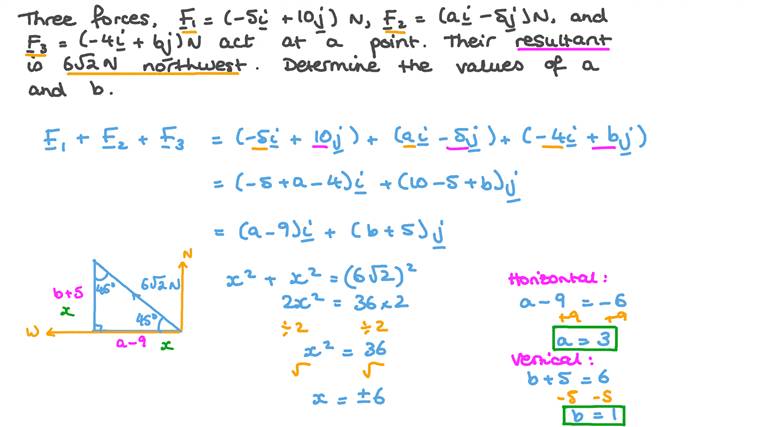 Three forces, F₁ = (-5i + 10j) N, F₂ = (ai - 5j)N, and
F₃ = (-4i + bj)N act at a point. Their resultant
is 6√2 N northwest. Determine the values of a
and b.
F₁ + F₂ + F₃ = (-5i + 10j) + (ai - 5j) + (-4i + bj)
= (-5 + a - 4)i + (10 - 5 + b)j
= (a - 9)i + (b + 5)j
N
W
45°
6√2 N
45°
b+5
x
a-9
x
x² + x² = (6√2)²
2x² = 36 × 2
÷2 ÷2
x² = 36
√ √
x = ±6
Horizontal:
a - 9 = -6
+9 +9
a = 3
Vertical:
b + 5 = 6
-5 -5
b = 1